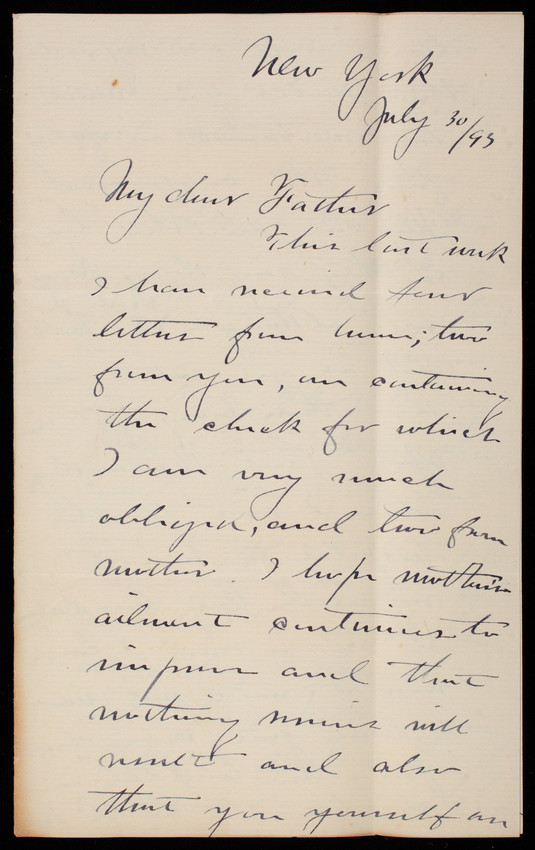 New York
July 30/93
My dear Father
This last week
I have received four
letters from home; two
from you, one containing
the check for which
I am very much
obliged, and two from
mother. I hope mother's
ailment continues to
improve and that
nothing serious will
result and also
that you yourself are